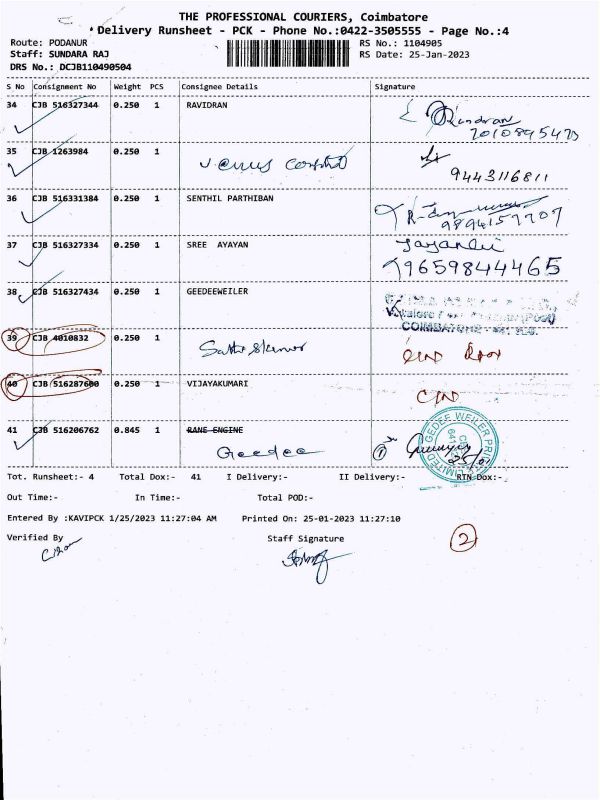 THE PROFESSIONAL COURIERS, Coimbatore
Delivery Runsheet - PCK - Phone No.:0422-3505555 - Page No.:4
Route: PODANUR RS No.: 1104905
Staff: SUNDARA RAJ RS Date: 25-Jan-2023
DRS No.: DCJB110490504
S No Consignment No Weight PCS Consignee Details Signature
34 CJB 516327344 0.250 1 RAVIDRAN
35 CJB 1263984 0.250 1 Venus
9443116811
36 CJB 516331384 0.250 1 SENTHIL PARTHIBAN
9894157707
37 CJB 516327334 0.250 1 SREE AYAYAN
9659844465
38 CJB 516327434 0.250 1 GEEDEEWEILER
COIMBATORE
39 CJB 4010832 0.250 1
40 CJB 516287600 0.250 1 VIJAYAKUMARI
41 CJB 516206762 0.845 1 RANE ENGINE
Geedee 1
GEDEE WEILER PRIVATE LIMITED
Tot. Runsheet:- 4 Total Dox:- 41 I Delivery:- II Delivery:- RTN Dox:-
Out Time:- In Time:- Total POD:-
Entered By :KAVIPCK 1/25/2023 11:27:04 AM Printed On: 25-01-2023 11:27:10
Verified By Staff Signature
2